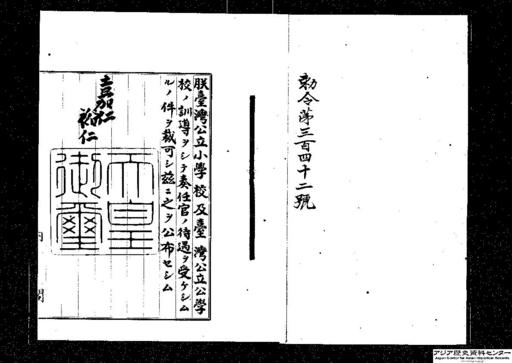 勅令第三百四十二號
朕臺灣公立小學校及臺灣公立公學
校ノ訓導ヲシテ奏任官ノ待遇ヲ受ケシム
ルノ件ヲ裁可シ茲ニ之ヲ公布セシム
嘉仁
裕仁
天皇御璽
内閣
アジア歴史資料センター
Japan Center for Asian Historical Records